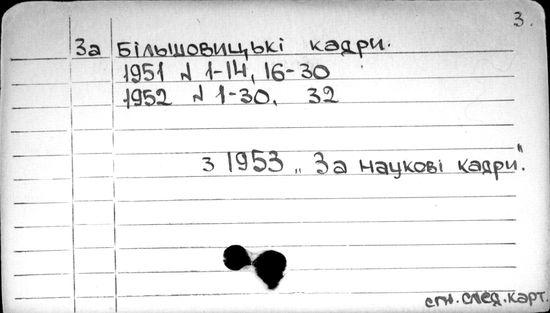 3.
За Більшовицькі кадри.
1951 N 1-14, 16-30
1952 N 1-30, 32
з 1953 „За наукові кадри".
след. карт.